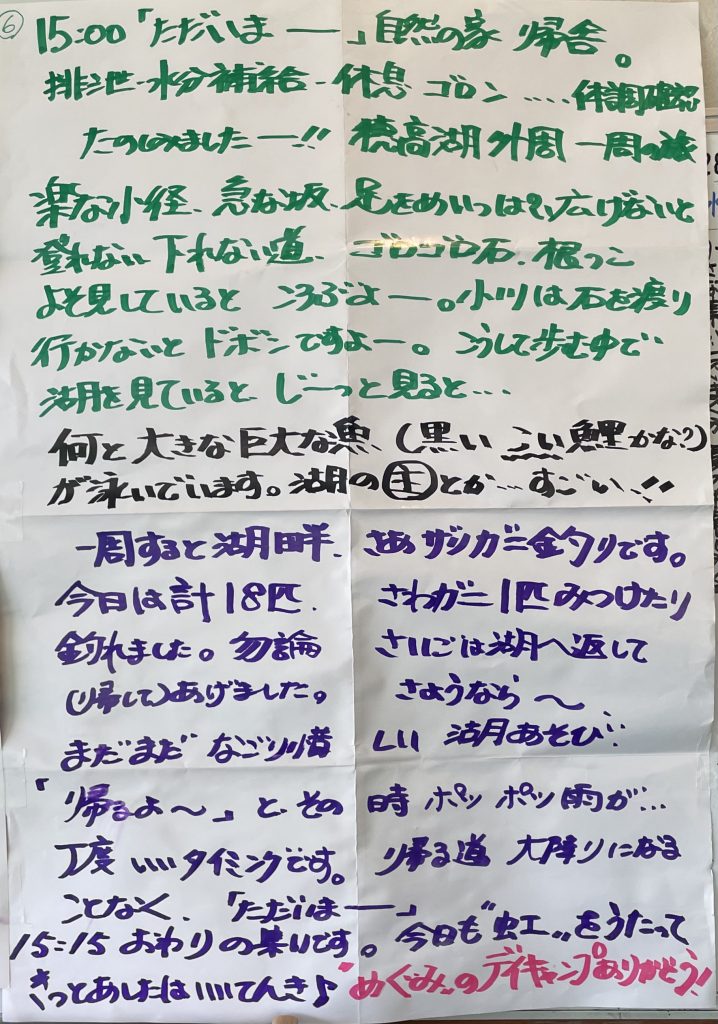 ⑥
15:00「ただいまー」自然の家 帰舎。
排泄-水分補給-休息 ゴロン....体調確認
たのしみましたー!! 穂高湖外周 一周の旅
楽な小径、急な坂、足をめいっぱい広げないと
登れない下れない道、ゴロゴロ石、根っこ
よそ見していると ころぶよー。小川は石を渡り
行かないと ドボンですよー。こうして歩む中で
湖を見ていると じーっと見ると...
何と大きな巨大な魚 (黒い こい 鯉かな?)
が泳いでいます。湖の主とか...すごい!!
一周すると湖畔、さあ ザリガニ釣りです。
今日は計18匹、さわがに1匹みつけたり
釣れました。勿論 さいごは湖へ返して
(帰して)あげました。さようなら〜
まだまだ なごり惜しい 湖あそび
「帰るよ〜」と、その時 ポツ ポツ 雨が...
丁度 いいタイミングです。帰る道 大降りになる
ことなく、「ただいまー」
15:15 おわりの集いです。今日も"虹"をうたって
きっとあしたはいいてんき♪ "めぐみ"のデイキャンプありがとう!